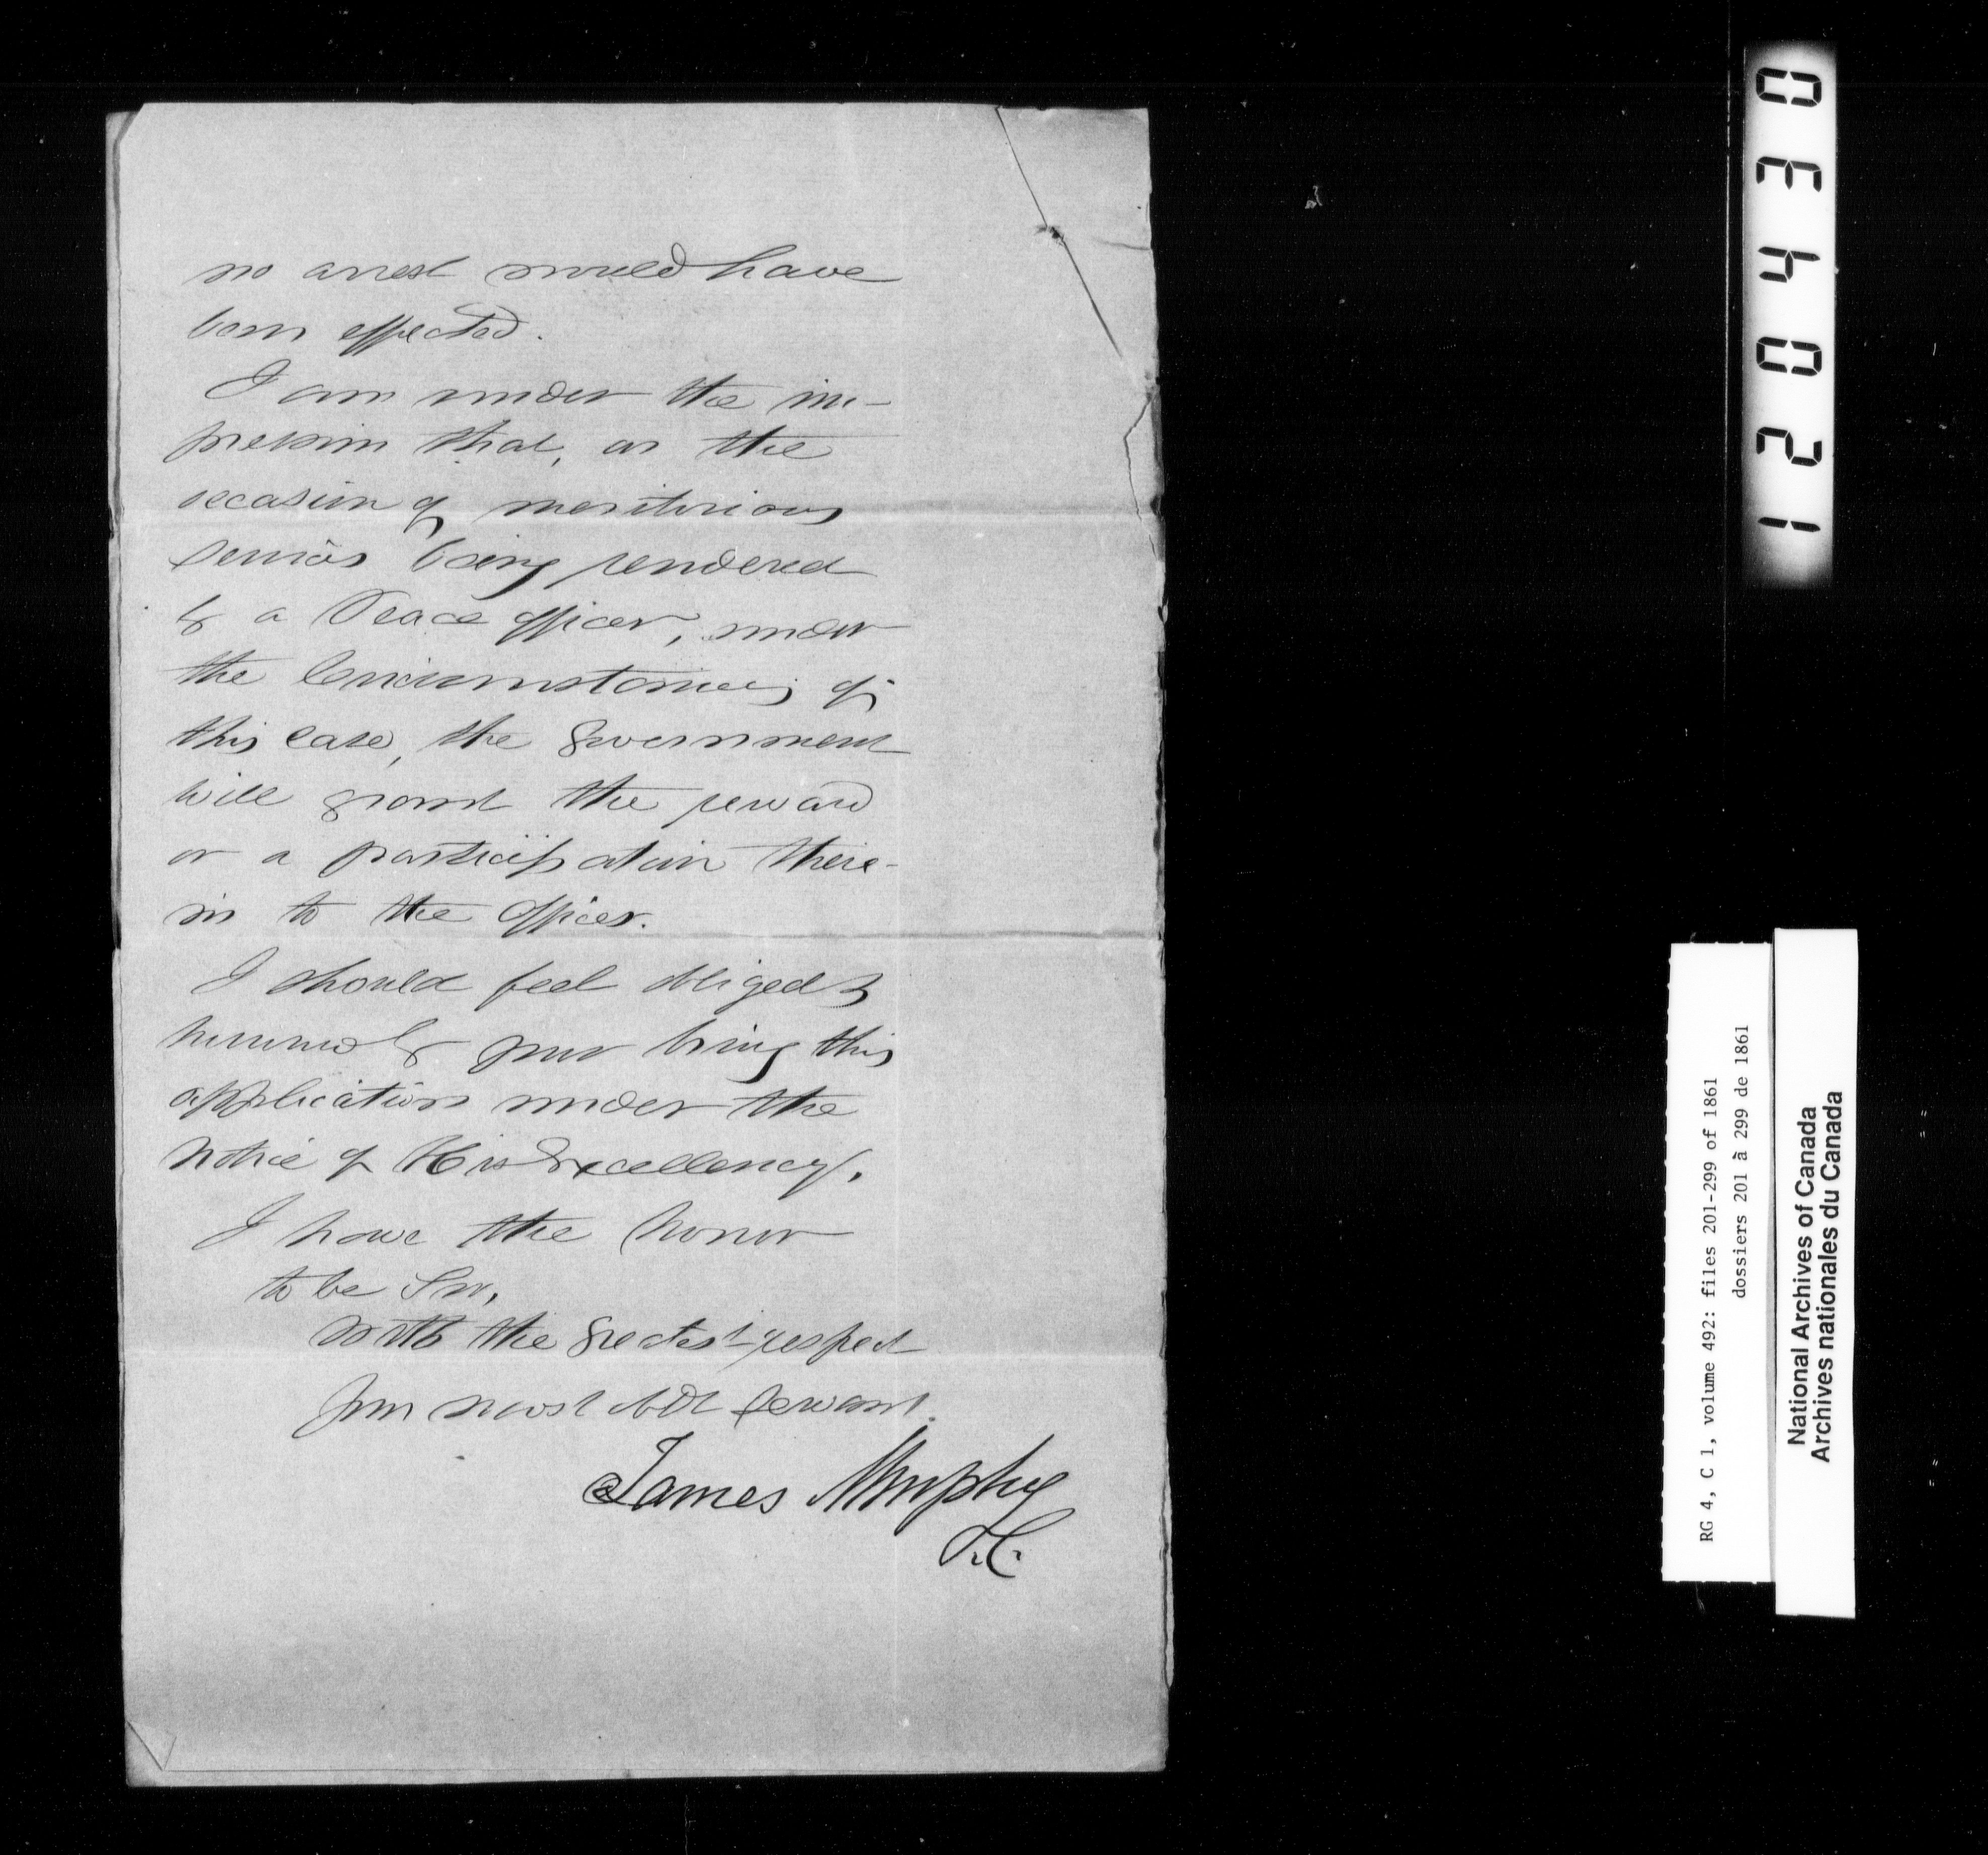 no arrest would have
been effected.
I am under the im-
pression that, on the
occasion of meritorious
services being rendered
by a Peace officer, under
the Circumstances of
this case, the Government
will grant the reward
or a participation there-
in to the Officer.
I should feel obliged &
honored by your bring this
application under the
notice of His Excellency.
I have the honor
to be Sir,
with the greatest respect
Your most obdt servant.
James Murphy
120430
RG 4, C 1, volume 492: files 201-299 of 1861
dossiers 201 à 299 de 1861
National Archives of Canada
Archives nationales du Canada